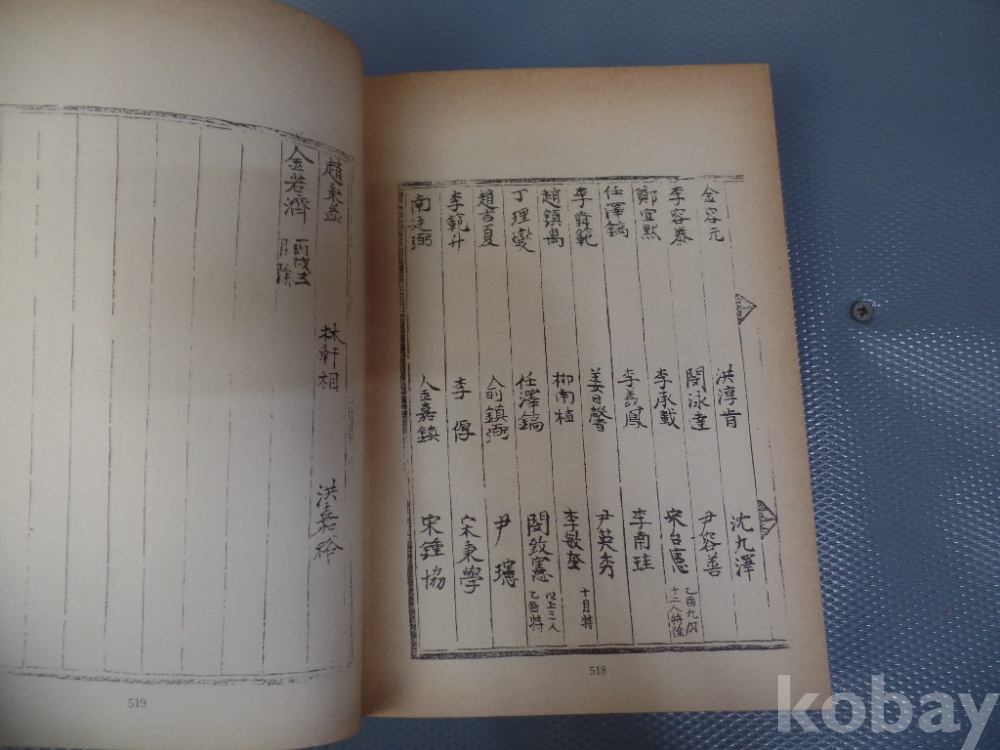 金容元
洪淳肯
沈九澤
李容泰
閔泳達
尹容善
乙酉九月
十二人特除
鄭宜默
李承載
宋台憲
任澤鎬
李義鳳
李南珪
李舜範
姜日馨
尹英秀
十月特
趙鎮萬
柳南植
李敏奎
以上三人
乙酉特
丁理燮
任澤鎬
閔致憲
趙吉夏
俞鎮弼
尹
李範升
李
宋秉學
南廷弼
金嘉鎮
宋鍾協
518
趙秉益
林軒相
洪嘉
金若濟
丙戌三
月除
519
kobay